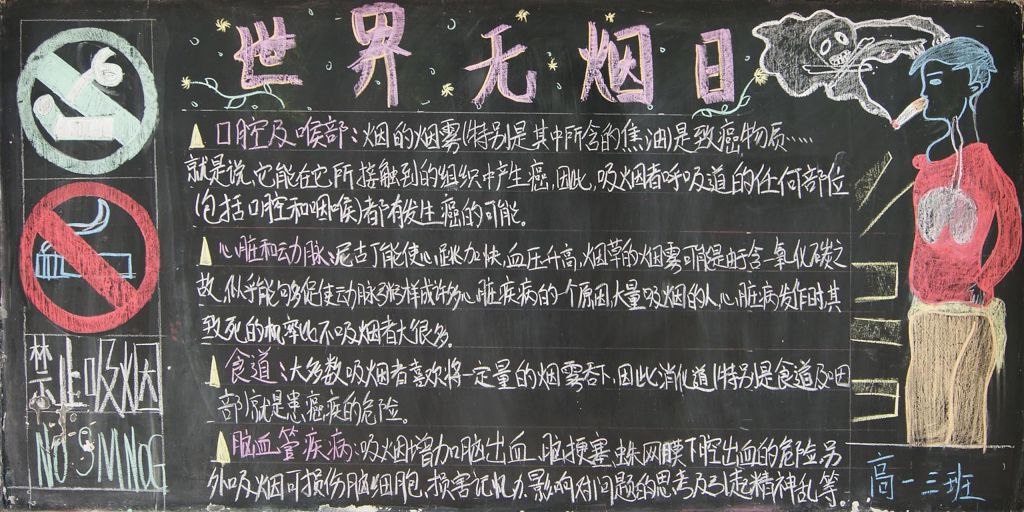 世界无烟日
口腔及喉部:烟的烟雾(特别是其中所含的焦油)是致癌物质……
就是说,它能在它所接触到的组织中产生癌,因此,吸烟者呼吸道的任何部位
(包括口腔和咽喉)都有发生癌的可能。
心脏和动脉:尼古丁能使心跳加快,血压升高,烟草的烟雾可能是由于含一氧化碳之
故,似乎能够促使动脉粥样成许多心脏疾病的一个原因,大量吸烟的人,心脏病发作时,其
致死的机率比不吸烟者大很多。
食道:大多数吸烟者喜欢将一定量的烟雾吞下,因此消化道(特别是食道及咽
部)就是患癌疾的危险。
脑血管疾病:吸烟增加脑出血、脑梗塞、蛛网膜下腔出血的危险,另
外吸烟可损伤脑细胞,损害记忆力,影响对问题的思考及引起精神乱等。
禁止吸烟
NO SMNOG
高一三班